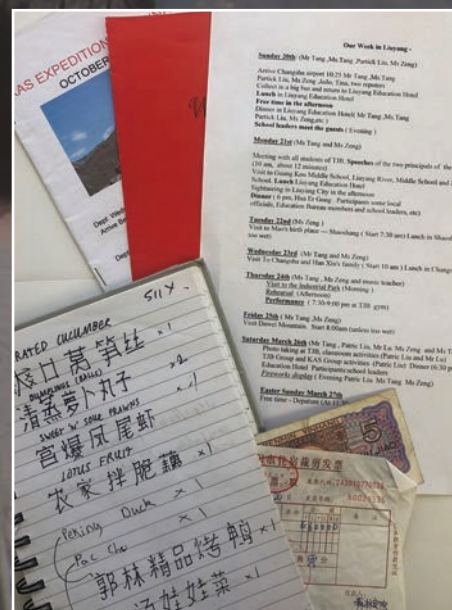 AS EXPEDITION
OCTOBER
Our Work in Liuyang -
Sunday 20th: (Mr Tang ,Ms Tang ,Partick Liu, Ms Zeng)
Arrive Changsha airport 10:25 Mr Tang ,Ms Tang
Partick Liu, Ms Zeng ,Julie, Tina, two reporters
Collect in a big bus and return to Liuyang Education Hotel
Lunch in Liuyang Education Hotel
Free time in the afternoon
Dinner in Liuyang Education Hotel( Mr Tang ,Ms Tang
Partick Liu, Ms Zeng,etc )
School leaders meet the guests ( Evening )
Monday 21st (Ms Tang and Ms Zeng)
Meeting with all students of TJB, Speeches of the two principals of the
(10 am, about 12 minutes)
Visit to Guang Kou Middle School, Liuyang River, Middle School and
School. Lunch Liuyang Education Hotel
Sightseeing in Liuyang City in the afternoon
Dinner ( 6 pm, Hua Er Gong . Participants some local
officials, Education Bureau members and school leaders, etc)
Tuesday 22nd (Ms Zeng )
Visit to Mao's birth place --- Shaoshang ( Start 7:30 am) Lunch in Shaosh
too wet)
Wednesday 23rd (Ms Tang and Ms Zeng)
Visit To Changsha and Han Xiu's family ( Start 10 am ) Lunch in Changs
Thursday 24th (Ms Tang , Ms Zeng and music teacher)
Visit to the Industrial Park (Morning )
Rehearsal (Afternoon)
Performance ( 7:30-9:00 pm at TJB gym)
Friday 25th ( Ms Tang ,Ms Zeng)
Visit Dawei Mountain. Start 8:00am (unless too wet)
Saturday March 26th (Mr Tang , Patric Liu, Mr Lu. Ms Zeng and Ms T
Photo taking at TJB, classroom activities (Patric Liu and Mr Lu)
TJB Group and KAS Group activities (Patric Liu) Dinner (6:30 p
Education Hotel Participants:school leaders
Fireworks display ( Evening Patric Liu Ms Tang Ms Zeng)
Easter Sunday March 27th
Free time - Departure (At 11:30
RATED CUCUMBER
莴笋丝 ×1
DUMPLINGS (BALLS)
清蒸萝卜丸子 ×2
SWEET 'N' SOUR PRAWNS
宫爆凤尾虾 ×1
LOTUS FRUIT
农家拌脆藕 ×1
Peking Duck ×1
Pac Cho ×1
郭林精品烤鸭 ×1
汤娃娃菜 ×1
5
JIAO
发票